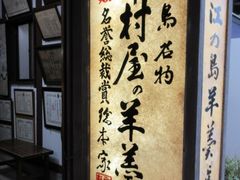 江の島羊羹
島名物
村屋の羊羹
名誉総裁賞総本家